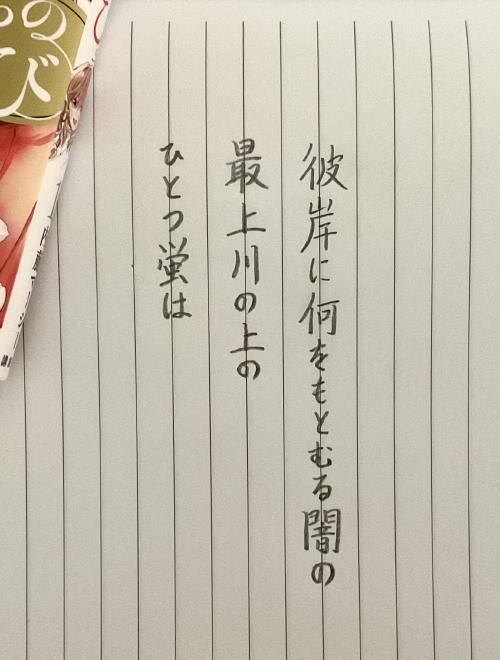 彼岸に何をもとむる闇の
最上川の上の
ひとつ蛍は
のび